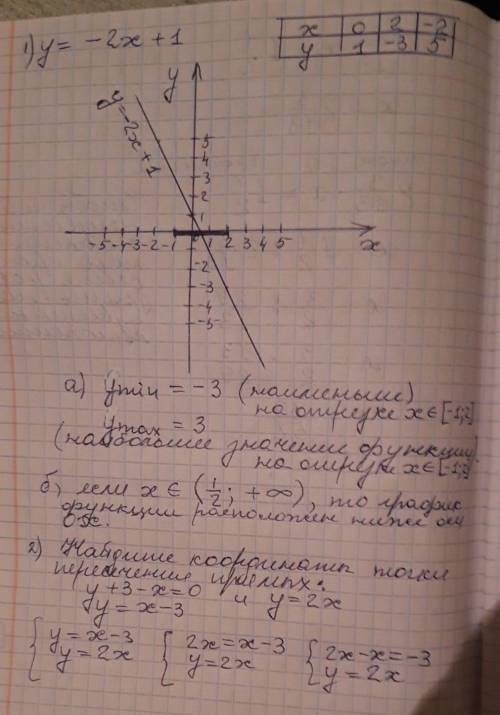 1) y = -2x + 1
x 0 2 -2
y 1 -3 5
y
y=-2x+1
5
4
3
2
1
-5 -4 -3 -2 -1 0 1 2 3 4 5
x
-2
-3
-4
-5
а) ymin = -3 (наименьшее)
на отрезке x ∈ [-1;2]
ymax = 3
(наибольшее значение функции)
на отрезке x ∈ [-1;2]
б) если x ∈ (1/2; +∞), то график
функции расположен ниже оси
Ox.
2) Найдите координаты точки
пересечения прямых:
y + 3 - x = 0 и y = 2x
y = x - 3
{ y = x - 3 { 2x = x - 3 { 2x - x = -3
y = 2x y = 2x y = 2x